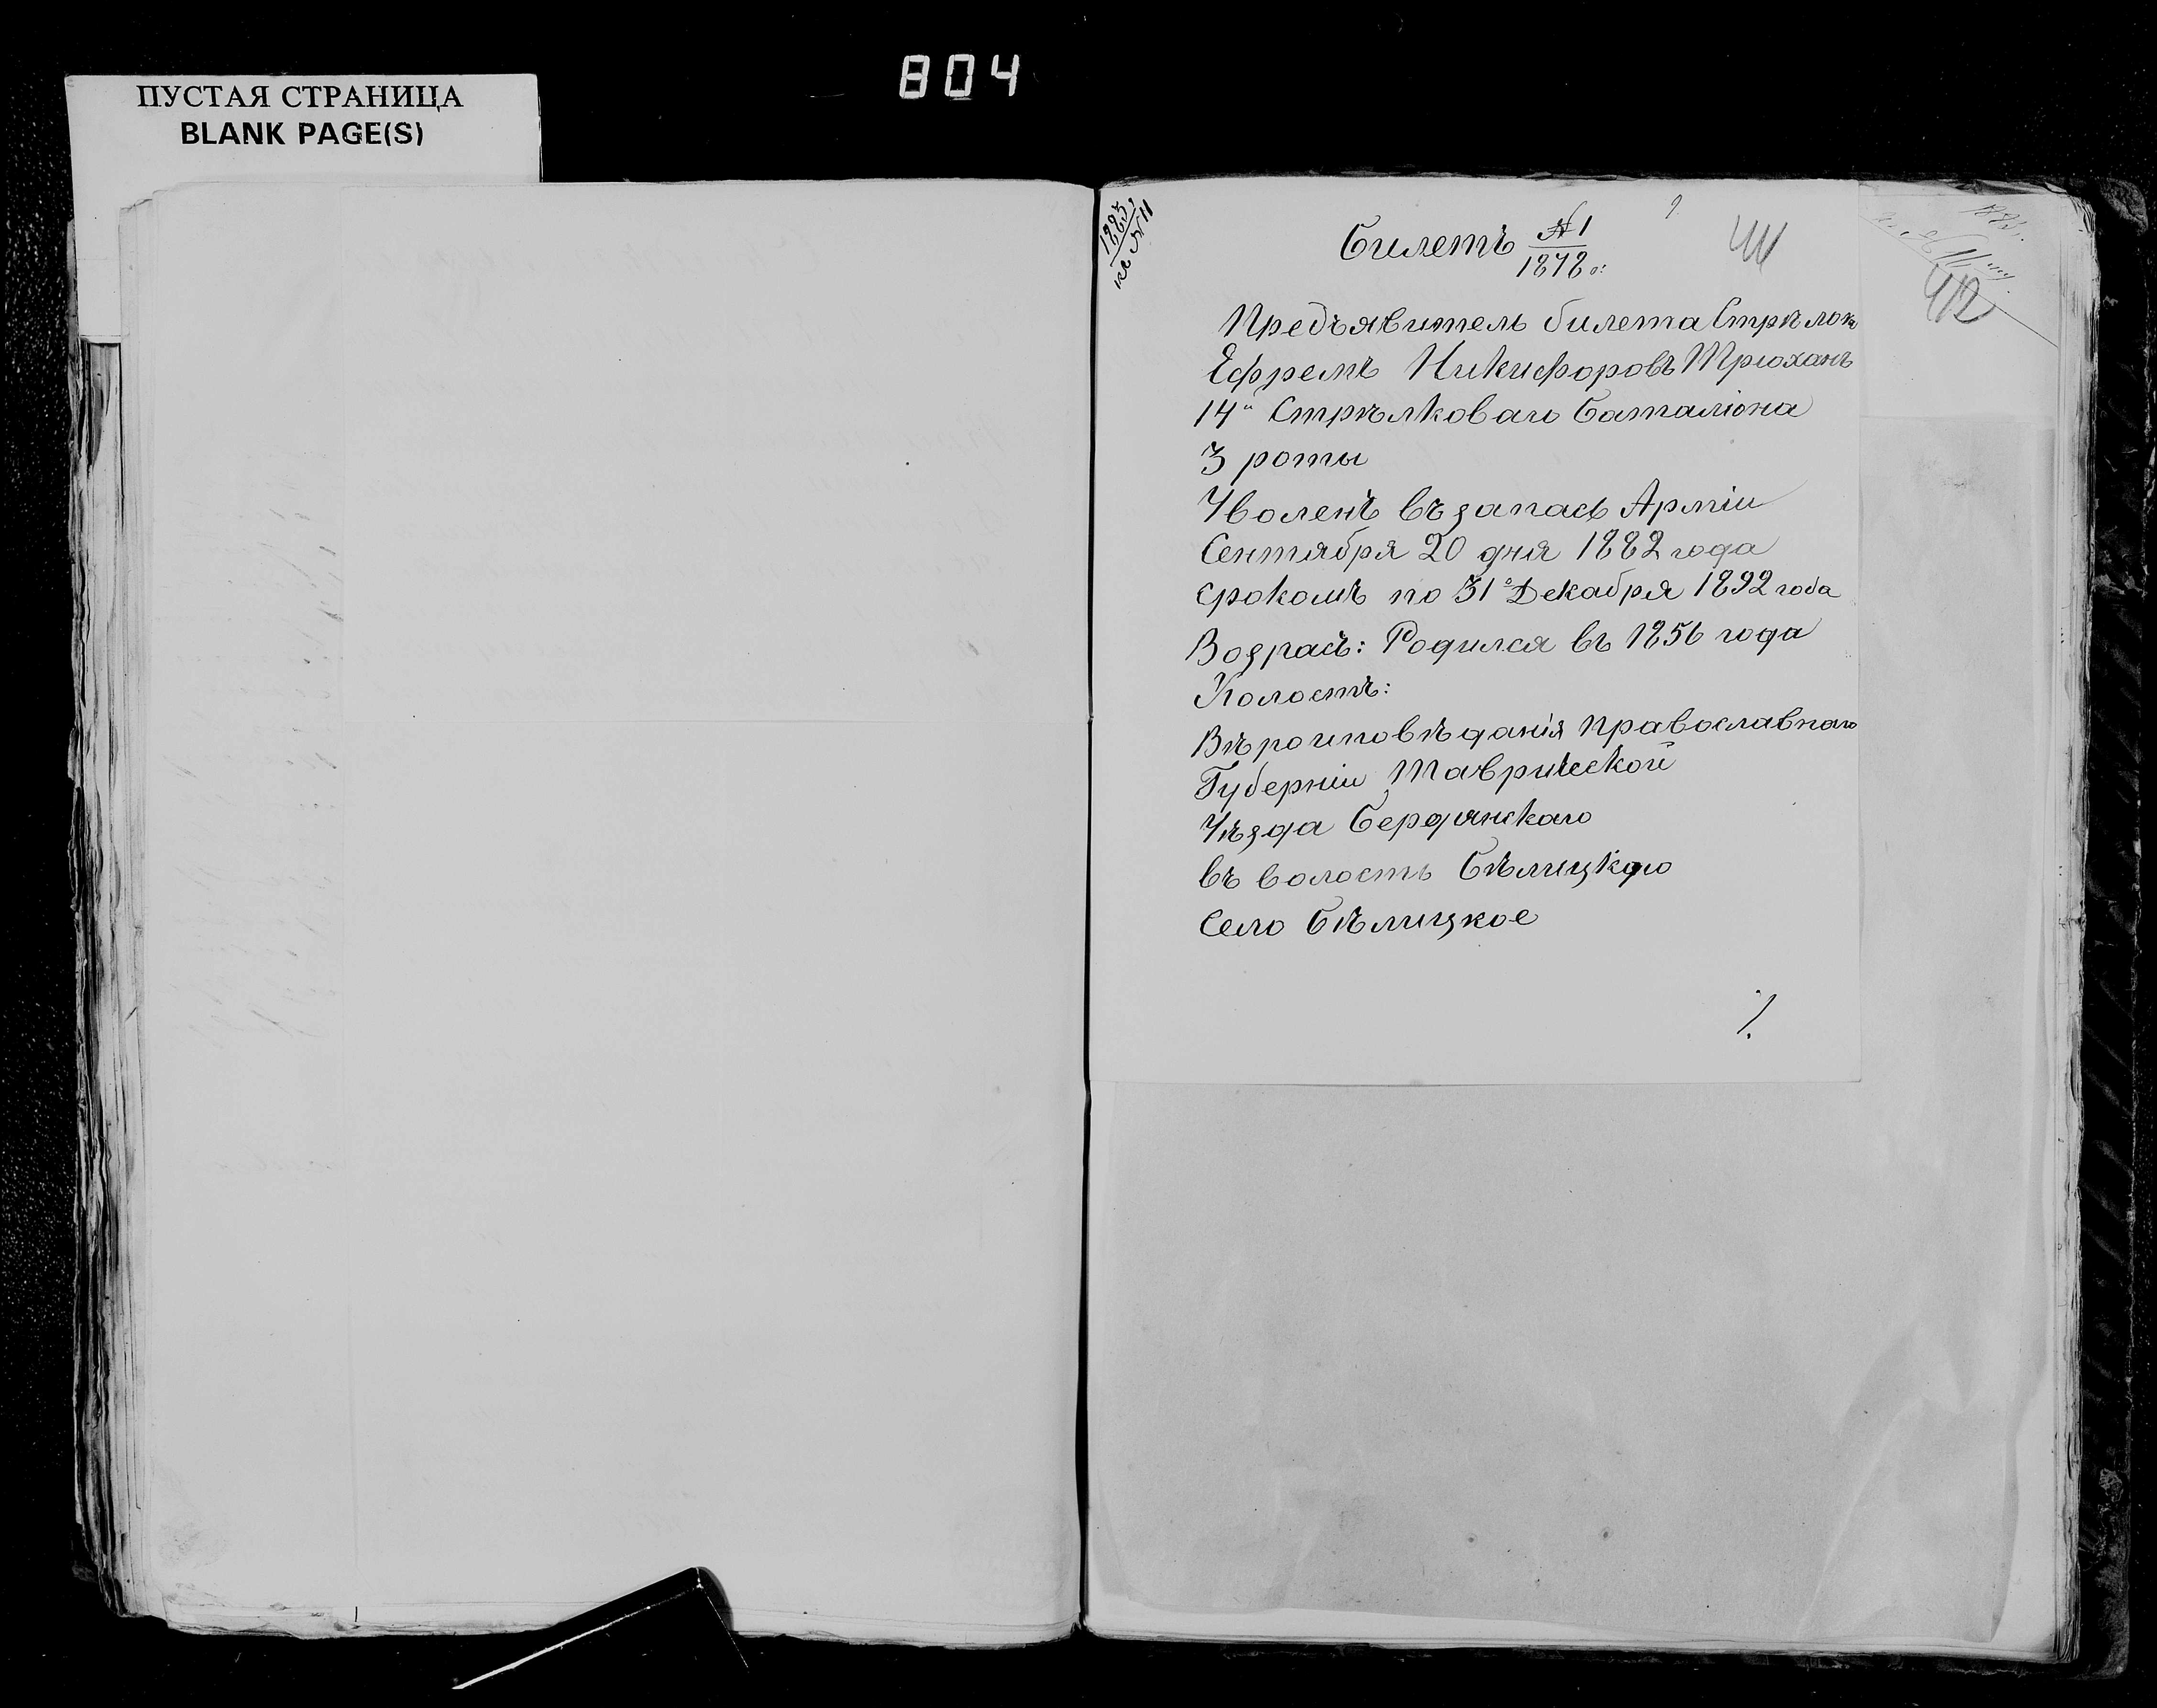 804
ПУСТАЯ СТРАНИЦА
BLANK PAGE(S)
1883
къ №11
Билетъ №1
1878 г:
44
1883.
412
Предъявитель билета Стрѣлокъ
Ефремъ Никифоровъ Трюханъ
14й Стрѣлковаго Баталіона
3 роты
Уволенъ въ запасъ Арміи
Сентября 20 дня 1882 года
срокомъ по 31е Декабря 1892 года
Возрасъ: Родился въ 1856 года
Холостъ:
Вѣроисповѣданія православнаго
Губерніи Таврической
Уѣзда Бердянскаго
въ волость Бѣлицкаго
Село Бѣлицкое